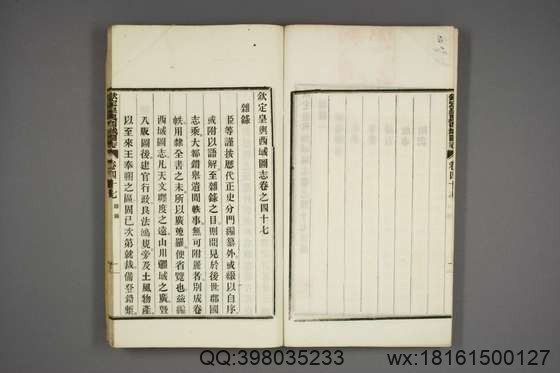 欽定皇輿西域圖志卷之四十七
雜錄
臣等謹按歷代正史分門編纂外或緣以自序
或附以語解至雜錄之目則間見於後世郡國
志乘大都鐕舉遺聞軼事無可附麗者別成卷
帙用隸全書之末所以廣蒐羅便省覽也茲編
西域圖志凡天文躔度之遠山川疆域之廣曁
入版圖後建官行政良法鴻規旁及土風物產
以至來王奉朔之區固已次第就裁備登鉛槧
卷四十七
卷四十七
QQ:398035233
wx:18161500127